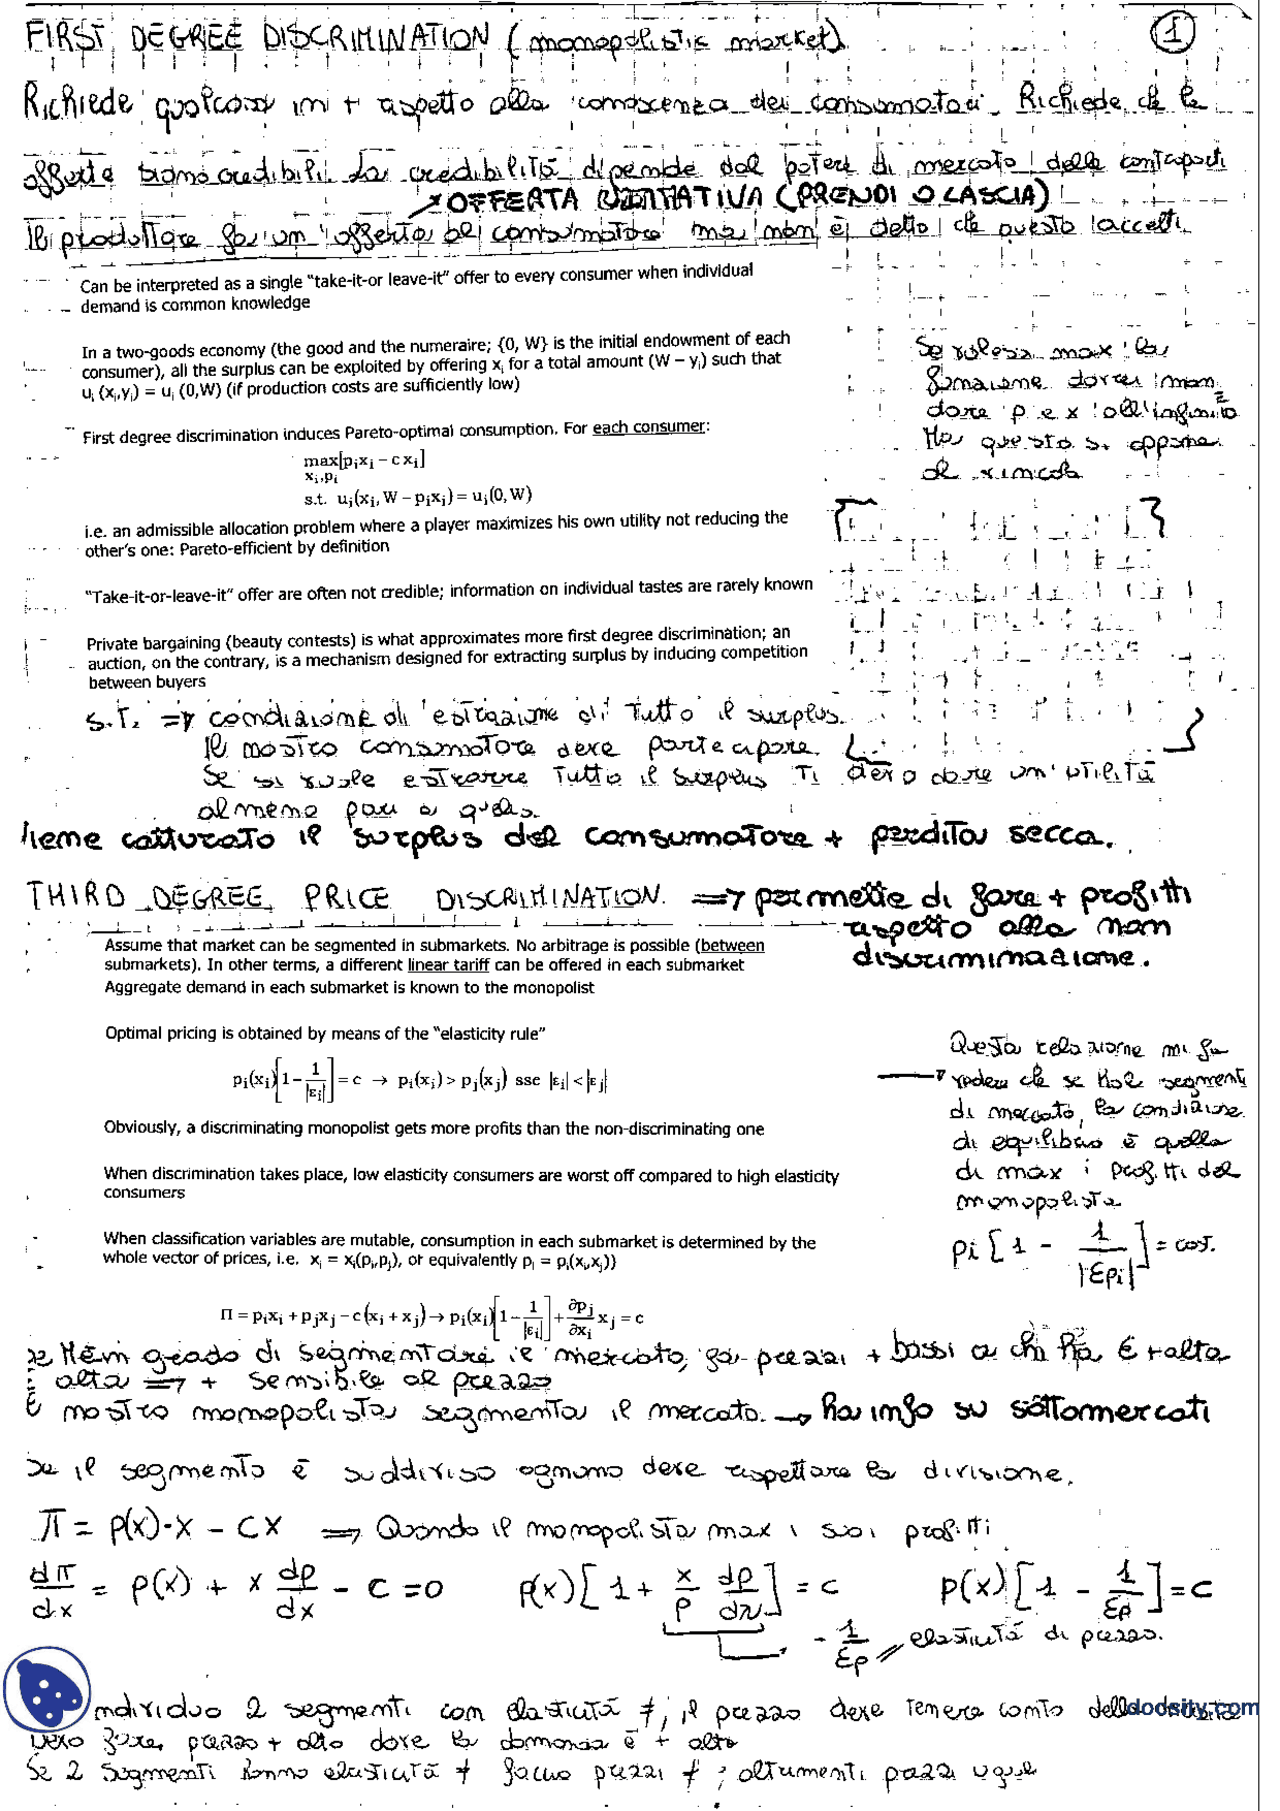 FIRST DEGREE DISCRIMINATION (monopolistic market)
1
Richiede qualcosa in + rispetto alla conoscenza dei consumatori. Richiede che le
offerte siano credibili. La credibilità dipende dal potere di mercato delle controparti
OFFERTA (PRENDI O LASCIA)
Il produttore fa un'offerta al consumatore ma non è detto che questo l'accetti.
Can be interpreted as a single "take-it-or leave-it" offer to every consumer when individual
demand is common knowledge
In a two-goods economy (the good and the numeraire; {0, W} is the initial endowment of each
consumer), all the surplus can be exploited by offering xᵢ for a total amount (W – yᵢ) such that
uᵢ (xᵢ,yᵢ) = uᵢ (0,W) (if production costs are sufficiently low)
Se volessi max la
funzione dovrei man
dare p e x all'infinito
Ma questo si oppone
al vincolo
First degree discrimination induces Pareto-optimal consumption. For each consumer:
max[pᵢxᵢ – cxᵢ]
xᵢ,pᵢ
s.t. uᵢ(xᵢ, W – pᵢxᵢ) = uᵢ(0, W)
i.e. an admissible allocation problem where a player maximizes his own utility not reducing the
other's one: Pareto-efficient by definition
"Take-it-or-leave-it" offer are often not credible; information on individual tastes are rarely known
Private bargaining (beauty contests) is what approximates more first degree discrimination; an
auction, on the contrary, is a mechanism designed for extracting surplus by inducing competition
between buyers
S.T. => condizione di estrazione di tutto il surplus.
Il nostro consumatore deve partecipare.
Se si vuole estrarre tutto il surplus ti devo dare un'utilità
almeno pari a quella.
Viene catturato il surplus del consumatore + perdita secca.
THIRD DEGREE PRICE DISCRIMINATION. => permette di fare + profitti
rispetto alla non
discriminazione.
Assume that market can be segmented in submarkets. No arbitrage is possible (between
submarkets). In other terms, a different linear tariff can be offered in each submarket
Aggregate demand in each submarket is known to the monopolist
Optimal pricing is obtained by means of the "elasticity rule"
pᵢ(xᵢ)[1 – 1/|εᵢ|] = c → pᵢ(xᵢ) > pⱼ(xⱼ) sse |εᵢ| < |εⱼ|
Questa relazione mi fa
vedere che se segmenti
di mercato, la condizione
di equilibrio è quella
di max i profitti del
monopolista
pi [1 - 1/|Epi|] = cost.
Obviously, a discriminating monopolist gets more profits than the non-discriminating one
When discrimination takes place, low elasticity consumers are worst off compared to high elasticity
consumers
When classification variables are mutable, consumption in each submarket is determined by the
whole vector of prices, i.e. xᵢ = xᵢ(pᵢ,pⱼ), or equivalently pᵢ = pᵢ(xᵢ,xⱼ))
Π = pᵢxᵢ + pⱼxⱼ – c(xᵢ + xⱼ) → pᵢ(xᵢ)[1 – 1/|εᵢ|] + ∂pⱼ/∂xᵢ xⱼ = c
se in grado di segmentare il mercato, fa prezzi + bassi a chi ha E + alta
alta => + sensibile al prezzo
Il nostro monopolista segmenta il mercato. → ha info su sottomercati
Se il segmento è suddiviso ognuno deve rispettare la divisione.
π = p(x)·x - cx => Quando il monopolista max i suoi profitti
dπ/dx = p(x) + x dp/dx - c = 0 p(x)[1 + x/p dp/dx] = c p(x)[1 - 1/Ep] = c
- 1/Ep elasticità di prezzo.
individuo 2 segmenti con elasticità ≠, il prezzo deve tenere conto della
docsity.com
fare prezzo + alto dove la domanda è + alta
Se 2 segmenti hanno elasticità ≠ faccio prezzi ≠; altrimenti prezzi uguali